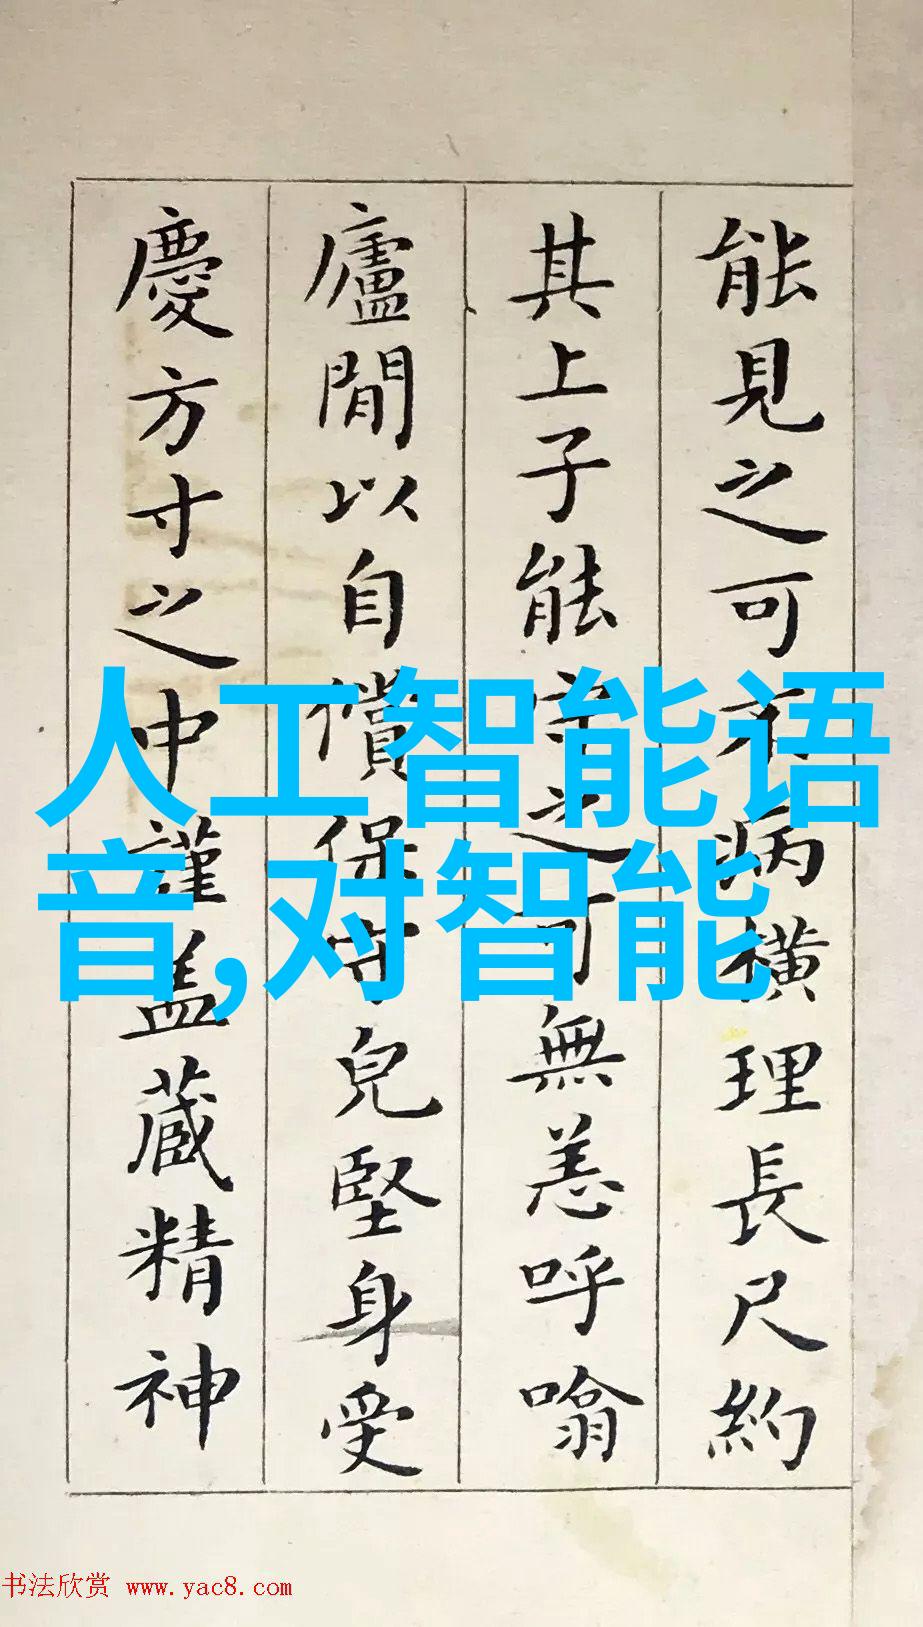 能見之可不病橫理長尺約
其上子能守之可無恙呼噏
廬間以自償保守皃堅身受
慶方寸之中謹盖藏精神
人工智能语
音,对智能
书法欣赏 www.yac8.com